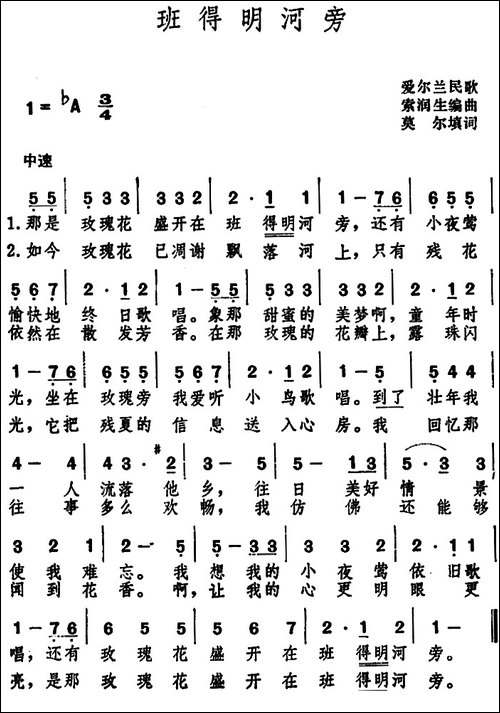 班得明河旁
爱尔兰民歌
1=♭A 3/4 索润生编曲
莫尔填词
中速
5 5 | 5 3 3 | 3 3 2 | 2 · 1 1 | 1 - 7 6 | 6 5 5 |
1.那是 玫瑰花 盛开在 班 得明河 旁，还有 小夜莺
2.如今 玫瑰花 已凋谢 飘 落河 上，只有 残花
5 6 7 | 2 · 1 2 | 1 - 5 5 | 5 3 3 | 3 3 2 | 2 · 1 2 |
愉快地 终日歌 唱。象那 甜蜜的 美梦啊，童年时
依然在 散发芳 香。在那 玫瑰的 花瓣上，露珠闪
1 - 7 6 | 6 5 5 | 5 6 7 | 2 · 1 2 | 1 - 5 | 5 5 5 |
光，坐在 玫瑰旁 我爱听 小鸟歌 唱。到了 壮年我
光，它把 残夏的 信息 送入心 房。我 回忆那
4 - 4 | 4 3 · #2 | 3 - 5 | 5 - 1 3 | 5 · 3 3 |
一人 流落他 乡，往日 美好 情景
往事 多么欢 畅，我仿 佛 还能够
3 2 1 | 2 - 5 | 5 - 3 3 | 3 3 2 | 2 · 1 2 |
使我难 忘。我 想我的 小夜莺 依旧歌
闻到花 香。啊， 让我的 心更明 眼更
1 - 7 6 | 6 5 5 | 5 6 7 | 2 · 0 1 2 | 1 - ‖
唱，还有 玫瑰花 盛开在 班得明河 旁。
亮，是那 玫瑰花 盛开在 班得明河 旁。